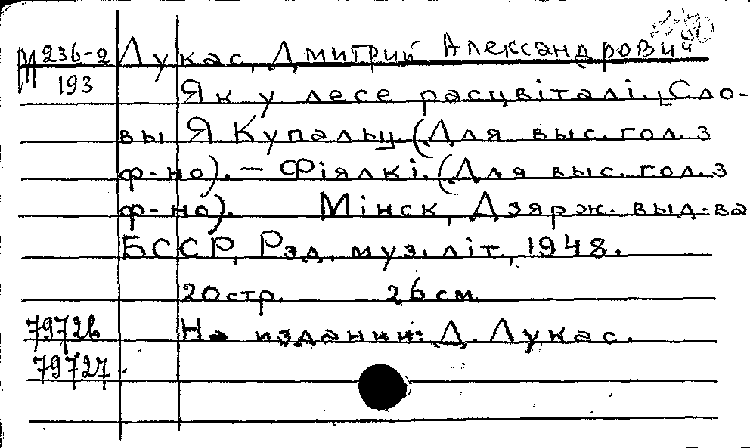 М 236-2 Лукас, Дмитрий Александрович
193
Як у лесе расцвіталі. [Сло-
вы Я Купалы. (Для выс. гол. з
ф-но). — Фіялкі. (Для выс. гол. з
ф-но). Мінск, Дзярж. выд-ва
БССР, Рэд. муз. літ., 1948.
20 стр. 26 см
79726 На издании: Д. Лукас.
79727